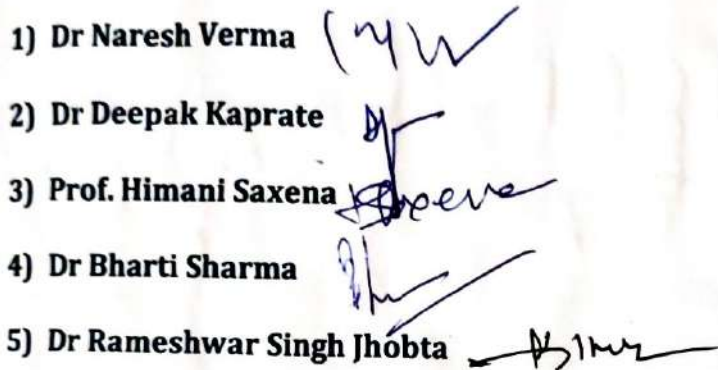 1) Dr Naresh Verma
2) Dr Deepak Kaprate
3) Prof. Himani Saxena
4) Dr Bharti Sharma
5) Dr Rameshwar Singh Jhobta